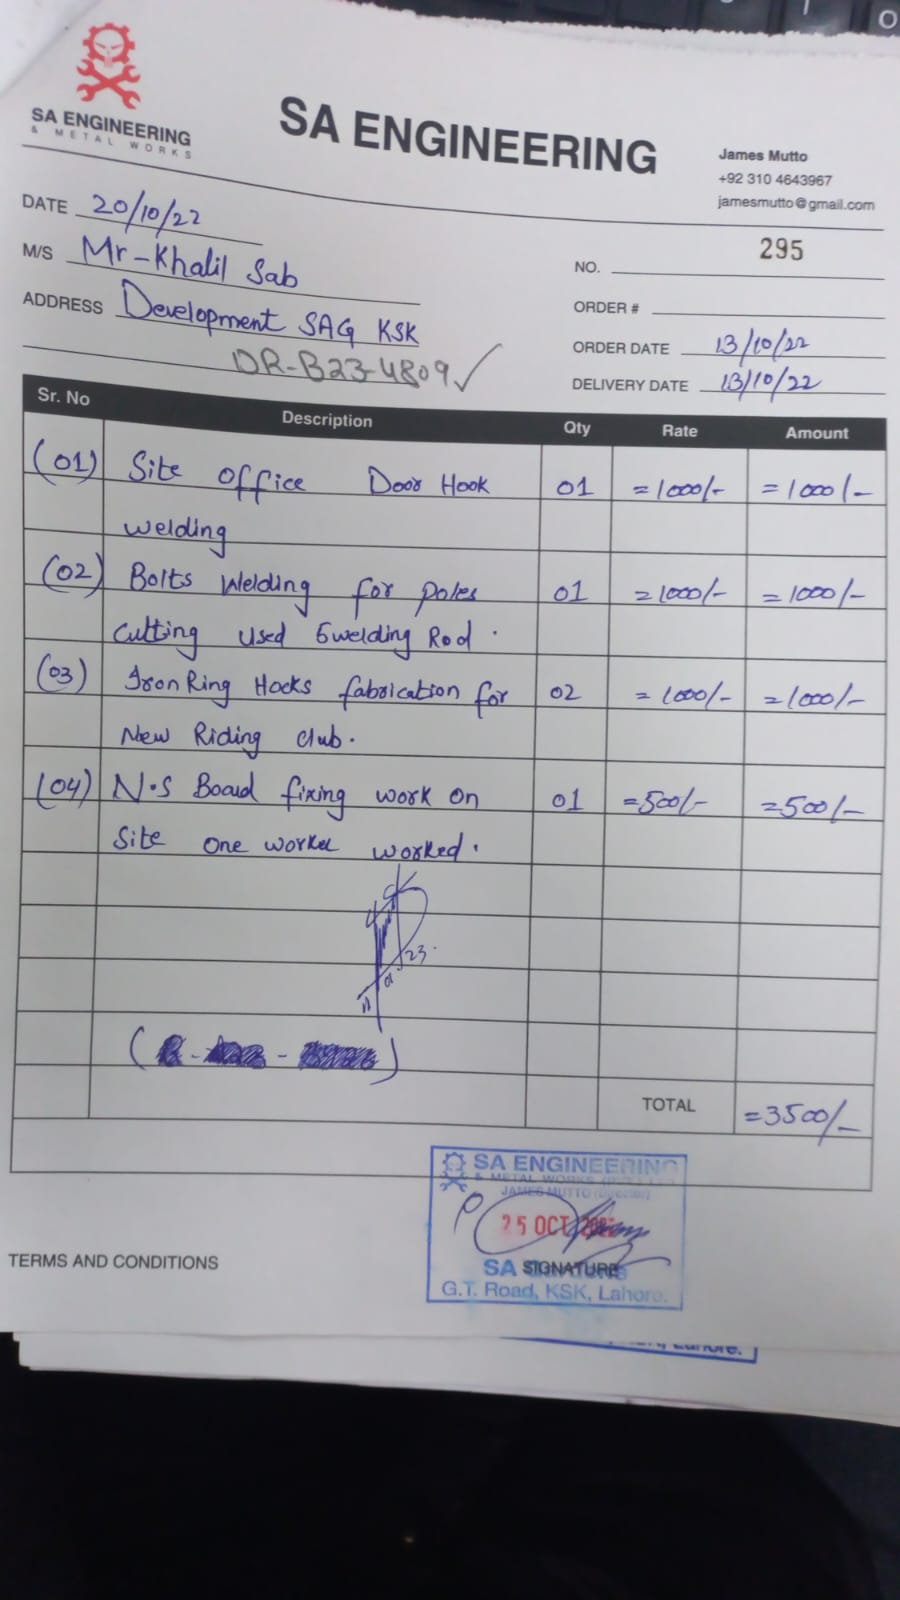 SA ENGINEERING
& METAL WORKS
SA ENGINEERING
James Mutto
+92 310 4643967
jamesmutto@gmail.com
DATE 20/10/22
M/S Mr-Khalil Sab
ADDRESS Development SAG KSK
DR-B23-4809 ✓
NO. 295
ORDER #
ORDER DATE 13/10/22
DELIVERY DATE 13/10/22
Sr. No Description Qty Rate Amount
(01) Site office Door Hook 01 =1000/- =1000/-
welding
(02) Bolts Welding for poles 01 =1000/- =1000/-
cutting used 5welding Rod.
(03) Iron Ring Hocks fabrication for 02 =1000/- =1000/-
New Riding club.
(04) N.S Board fixing work on 01 =500/- =500/-
Site one worker worked.
TOTAL =3500/-
SA ENGINEERING
& METAL WORKS
JAMES MUTTO
25 OCT
SA
SIGNATURE
G.T. Road, KSK, Lahore.
TERMS AND CONDITIONS
Lahore.